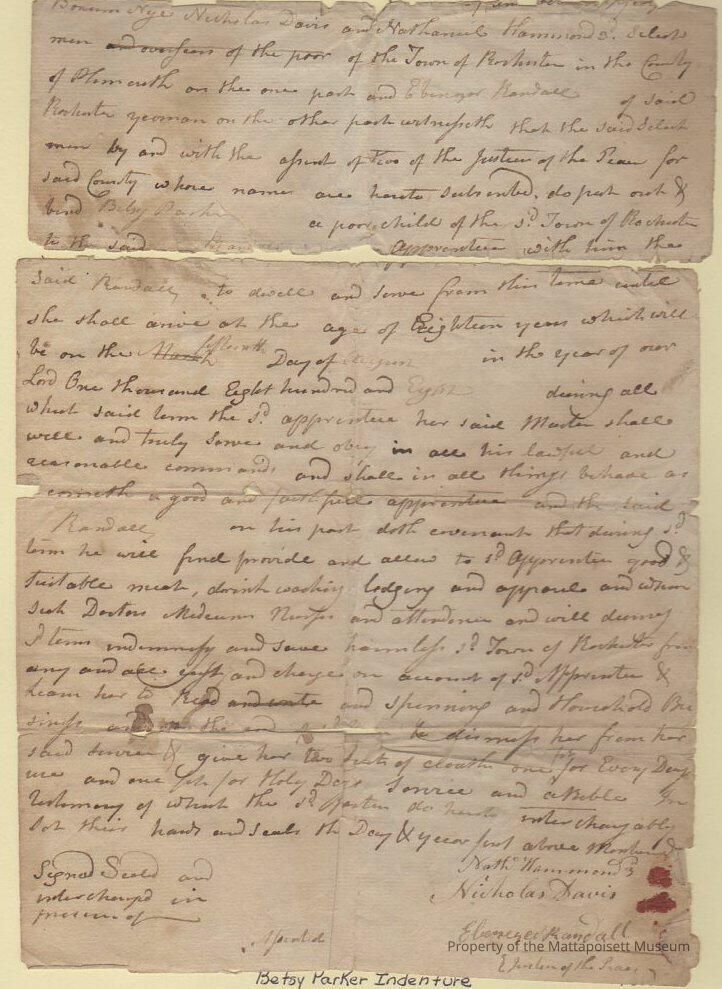 Bonum Nye Nicholas Davis and Nathaniel Hammond 3d. Select
men and overseers of the poor of the Town of Rochester in the County
of Plymouth on the one part and Ebenezer Randall of said
Rochester yeoman on the other part witnesseth that the said Select
men by and with the assent of two of the Justices of the Peace for
said County whose names are hereto subscribed, do put out &
bind Betsy Parker a poor child of the sd. Town of Rochester
to the said Randall apprentice with him the
said Randall to dwell and serve from this time until
she shall arive at the age of Eighteen years which will
be on the March Day of August in the year of our
Lord One thousand Eight hundred and Eight during all
which said term the sd. apprentice her said Master shall
well and truly serve and obey in all his lawful and
reasonable commands and shall in all things behave as
cometh a good and faithfull apprentice and the said
Randall on his part doth covenant that during sd
term he will find provide and allow to sd Apprentice good &
suitable meat, drink washing lodging and apparel and when
Sick Doctors Medicines Nurses and attendence and will during
sd term indemnify and save harmless sd. Town of Rochester from
any and all cost and charge on account of sd Apprentice &
Learn her to Read and write and spinning and Household Bu
siness and the end to dismiss her from her
said service & give her two suits of cloaths one for Every Day
use and one for Holy Days Service and a Bible In
Testimony of which the sd. Parties do hereto interchangably
Set their hands and seals the Day & year first above Mentioned
Nathl. Hammond 3d
Signed Seald and
Nicholas Davis
interchangd in
presence of
Ebenezer Randall
Assented
Justices of the Peace
Property of the Mattapoisett Museum
Betsy Parker Indenture